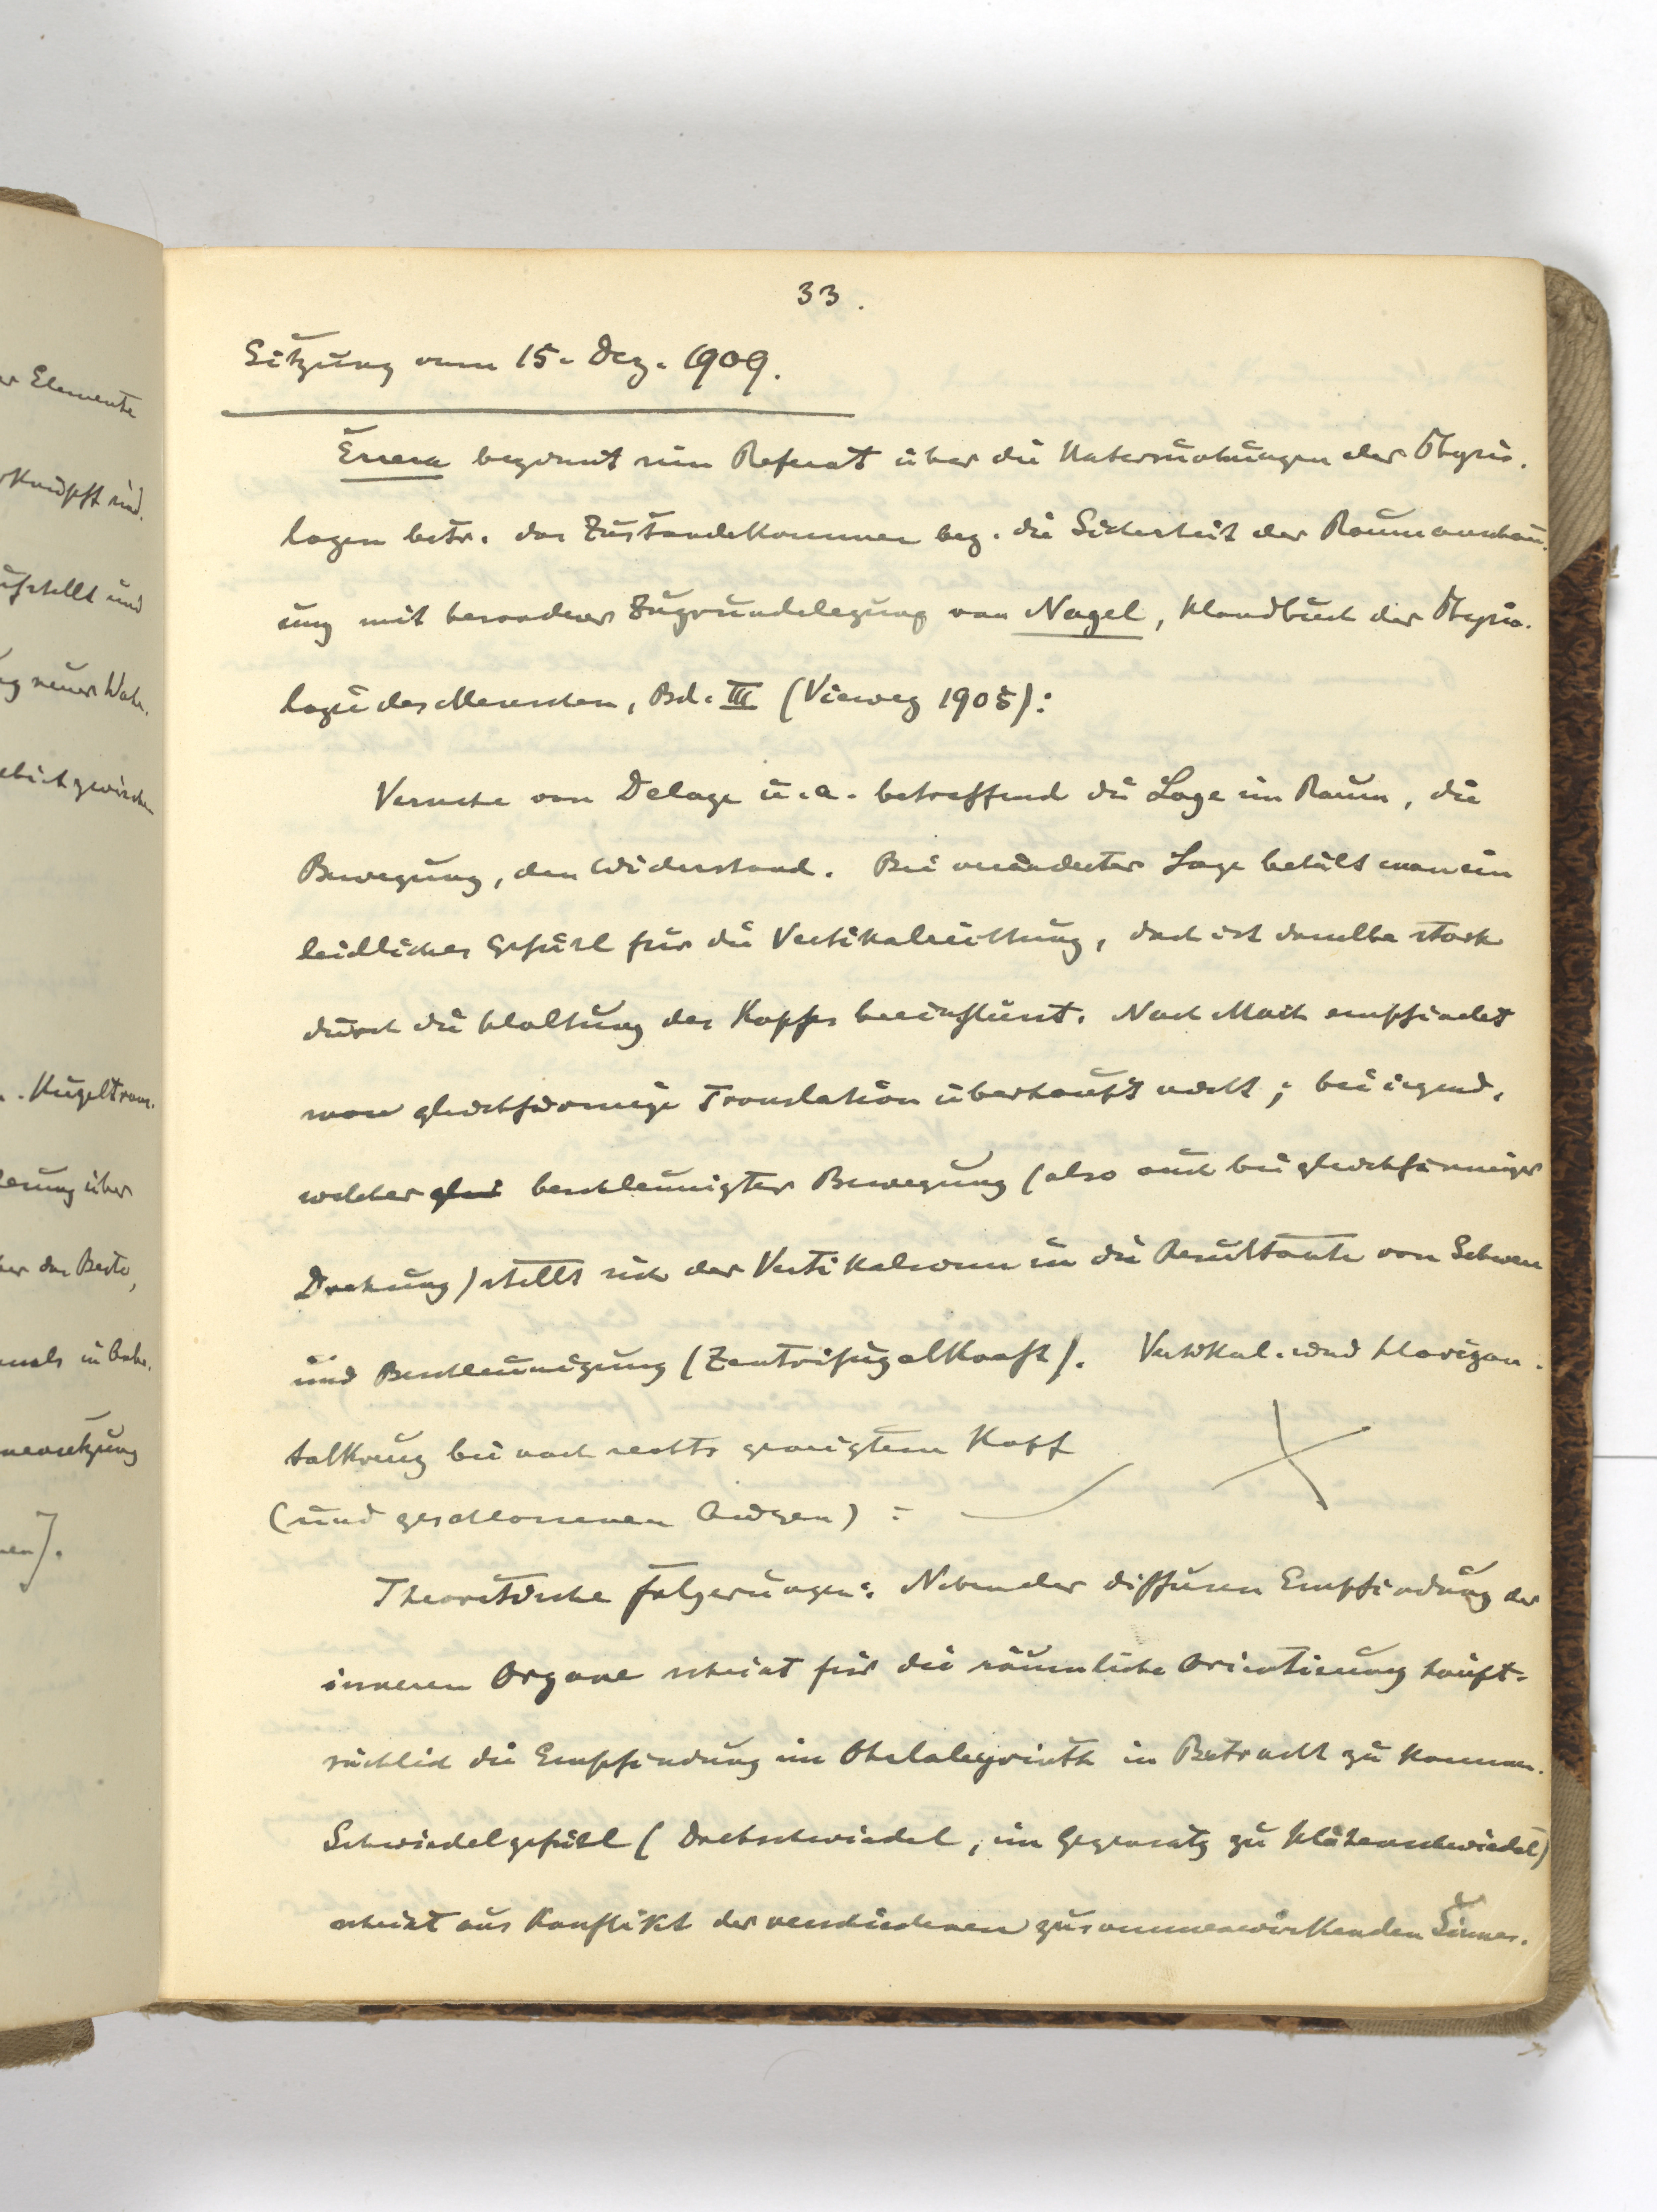 er Elemente
rknüpft sind.
ufstellt und
ng neuer Wahr-
. Kugeltrans-
erung über
ner das Beste,
mals in Betr.
mensetzung
nen].
33.
Sitzung vom 15. Dez. 1909.
Errera beginnt sein Referat über die Untersuchungen der Physio-
logen betr. das Zustandekommen bez. die Sicherheit der Raumanschau-
ung mit besonderer Zugrundelegung von Nagel, Handbuch der Physio-
logie des Menschen, Bd. III (Vieweg 1905):
Versuche von Delage u. a. betreffend die Lage im Raum, die
Bewegung, den Widerstand. Bei veränderter Lage behält man ein
leidliches Gefühl für die Vertikalrichtung, doch ist dasselbe stark
durch die Haltung des Kopfes beeinflusst. Nach Mach empfindet
man gleichförmige Translation überhaupt nicht; bei irgend-
welcher glei beschleunigter Bewegung (also auch bei gleichförmiger
Drehung) stellt sich der Vertikalsinn in die Resultante von Schwere
und Beschleunigung (Zentrifugalkraft). Vertikal- und Horizon-
talkreuz bei nach rechts geneigtem Kopf
(und geschlossenen Augen):
Theoretische Folgerungen: Neben der diffusen Empfindung der
inneren Organe scheint für die räumliche Orientierung haupt-
sächlich die Empfindung im Ohrlabyrinth in Betracht zu kommen.
Schwindelgefühl (Drehschwindel, im Gegensatz zu Höhenschwindel)
scheint aus Konflikt der verschiedenen zusammenwirkenden Sinnes-